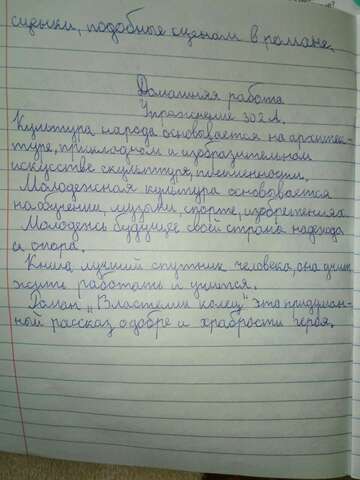 сценки, подобные сценам в романе.
Домашняя работа
Упражнение 302А.
Культура народа основывается на архитек-
туре, прикладном и изобразительном
искусстве скульптуря, писменности.
Молодежная культура основывается
на обучении, музыки, спорте, изобретениях.
Молодежь будущее своей страны надежда
и опора.
Книга лучший спутник человека, она учит
жить работать и учится.
Роман „Властелин колец" это придуман-
ный рассказ о добре и храбрости героя.